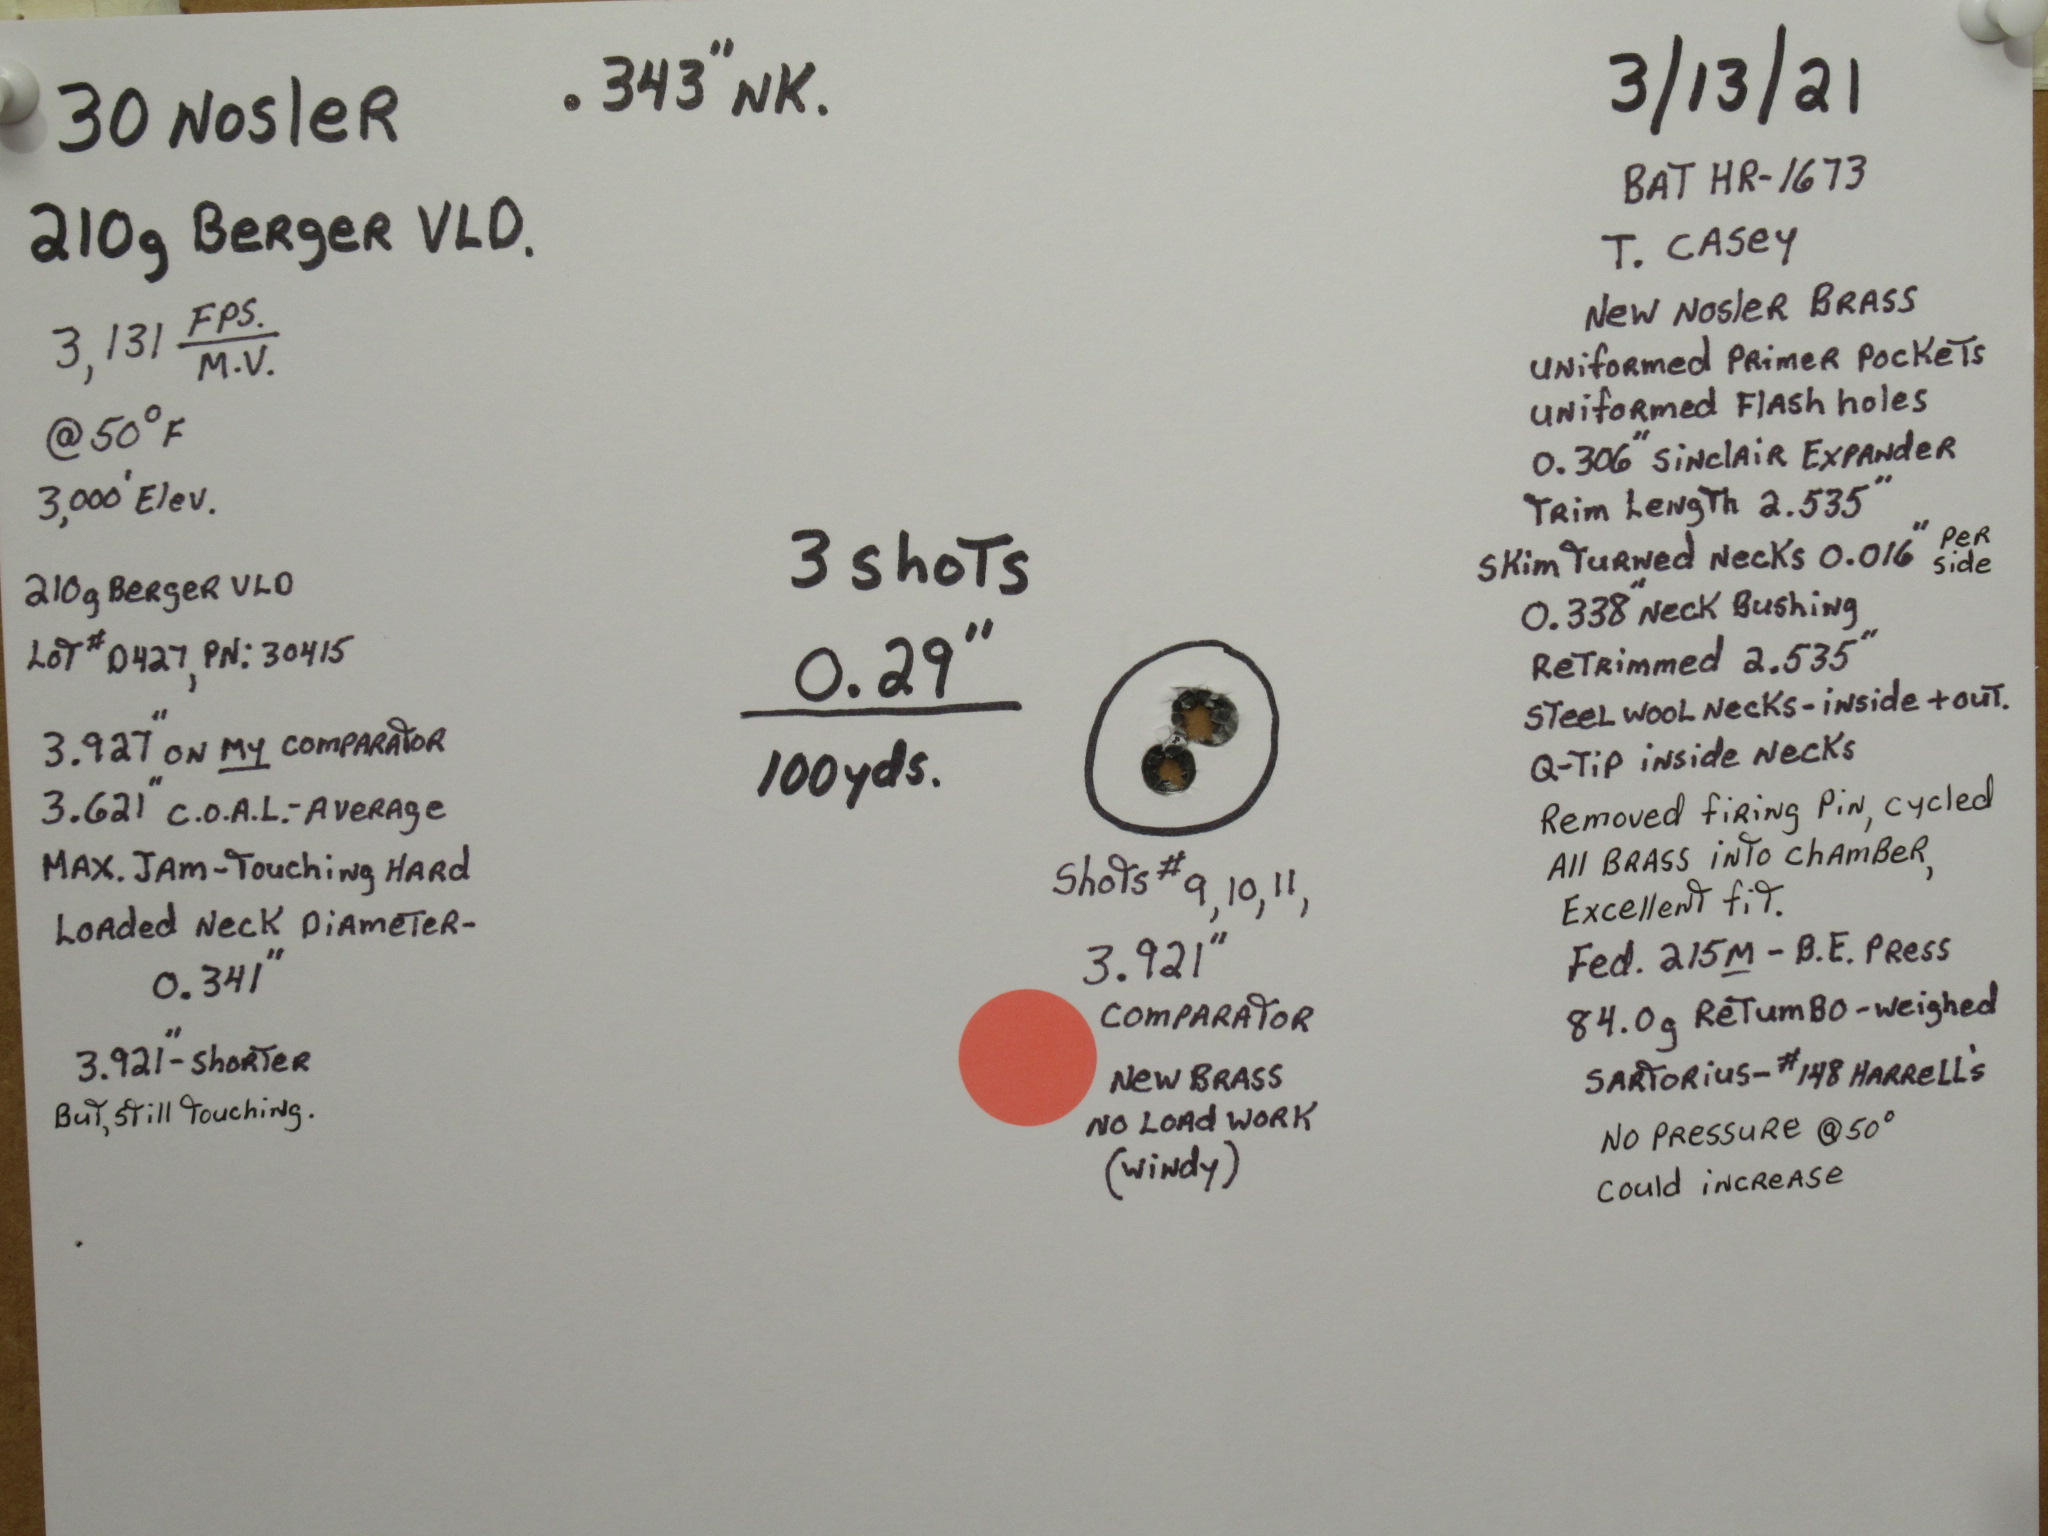 30 Nosler
.343" NK.
210g Berger VLD.
3,131 FPS.
M.V.
@50°F
3,000' Elev.
210g Berger VLD
Lot# D427, PN: 30415
3.927" on my comparator
3.621" C.O.A.L.-Average
Max. Jam-Touching Hard
Loaded Neck Diameter-
0.341"
3.921"-shorter
But, still touching.
3 shots
0.29"
100yds.
Shots #9, 10, 11,
3.921"
comparator
New Brass
No Load Work
(windy)
3/13/21
BAT HR-1673
T. Casey
New Nosler Brass
Uniformed Primer Pockets
Uniformed Flash holes
0.306" Sinclair Expander
Trim Length 2.535"
Skim Turned Necks 0.016" per side
0.338" Neck Bushing
ReTrimmed 2.535"
Steel Wool Necks-inside + out.
Q-Tip inside Necks
Removed firing pin, cycled
All Brass into chamber,
Excellent fit.
Fed. 215M - B.E. Press
84.0g Retumbo-weighed
Sartorius-#148 Harrell's
No pressure @50°
could increase